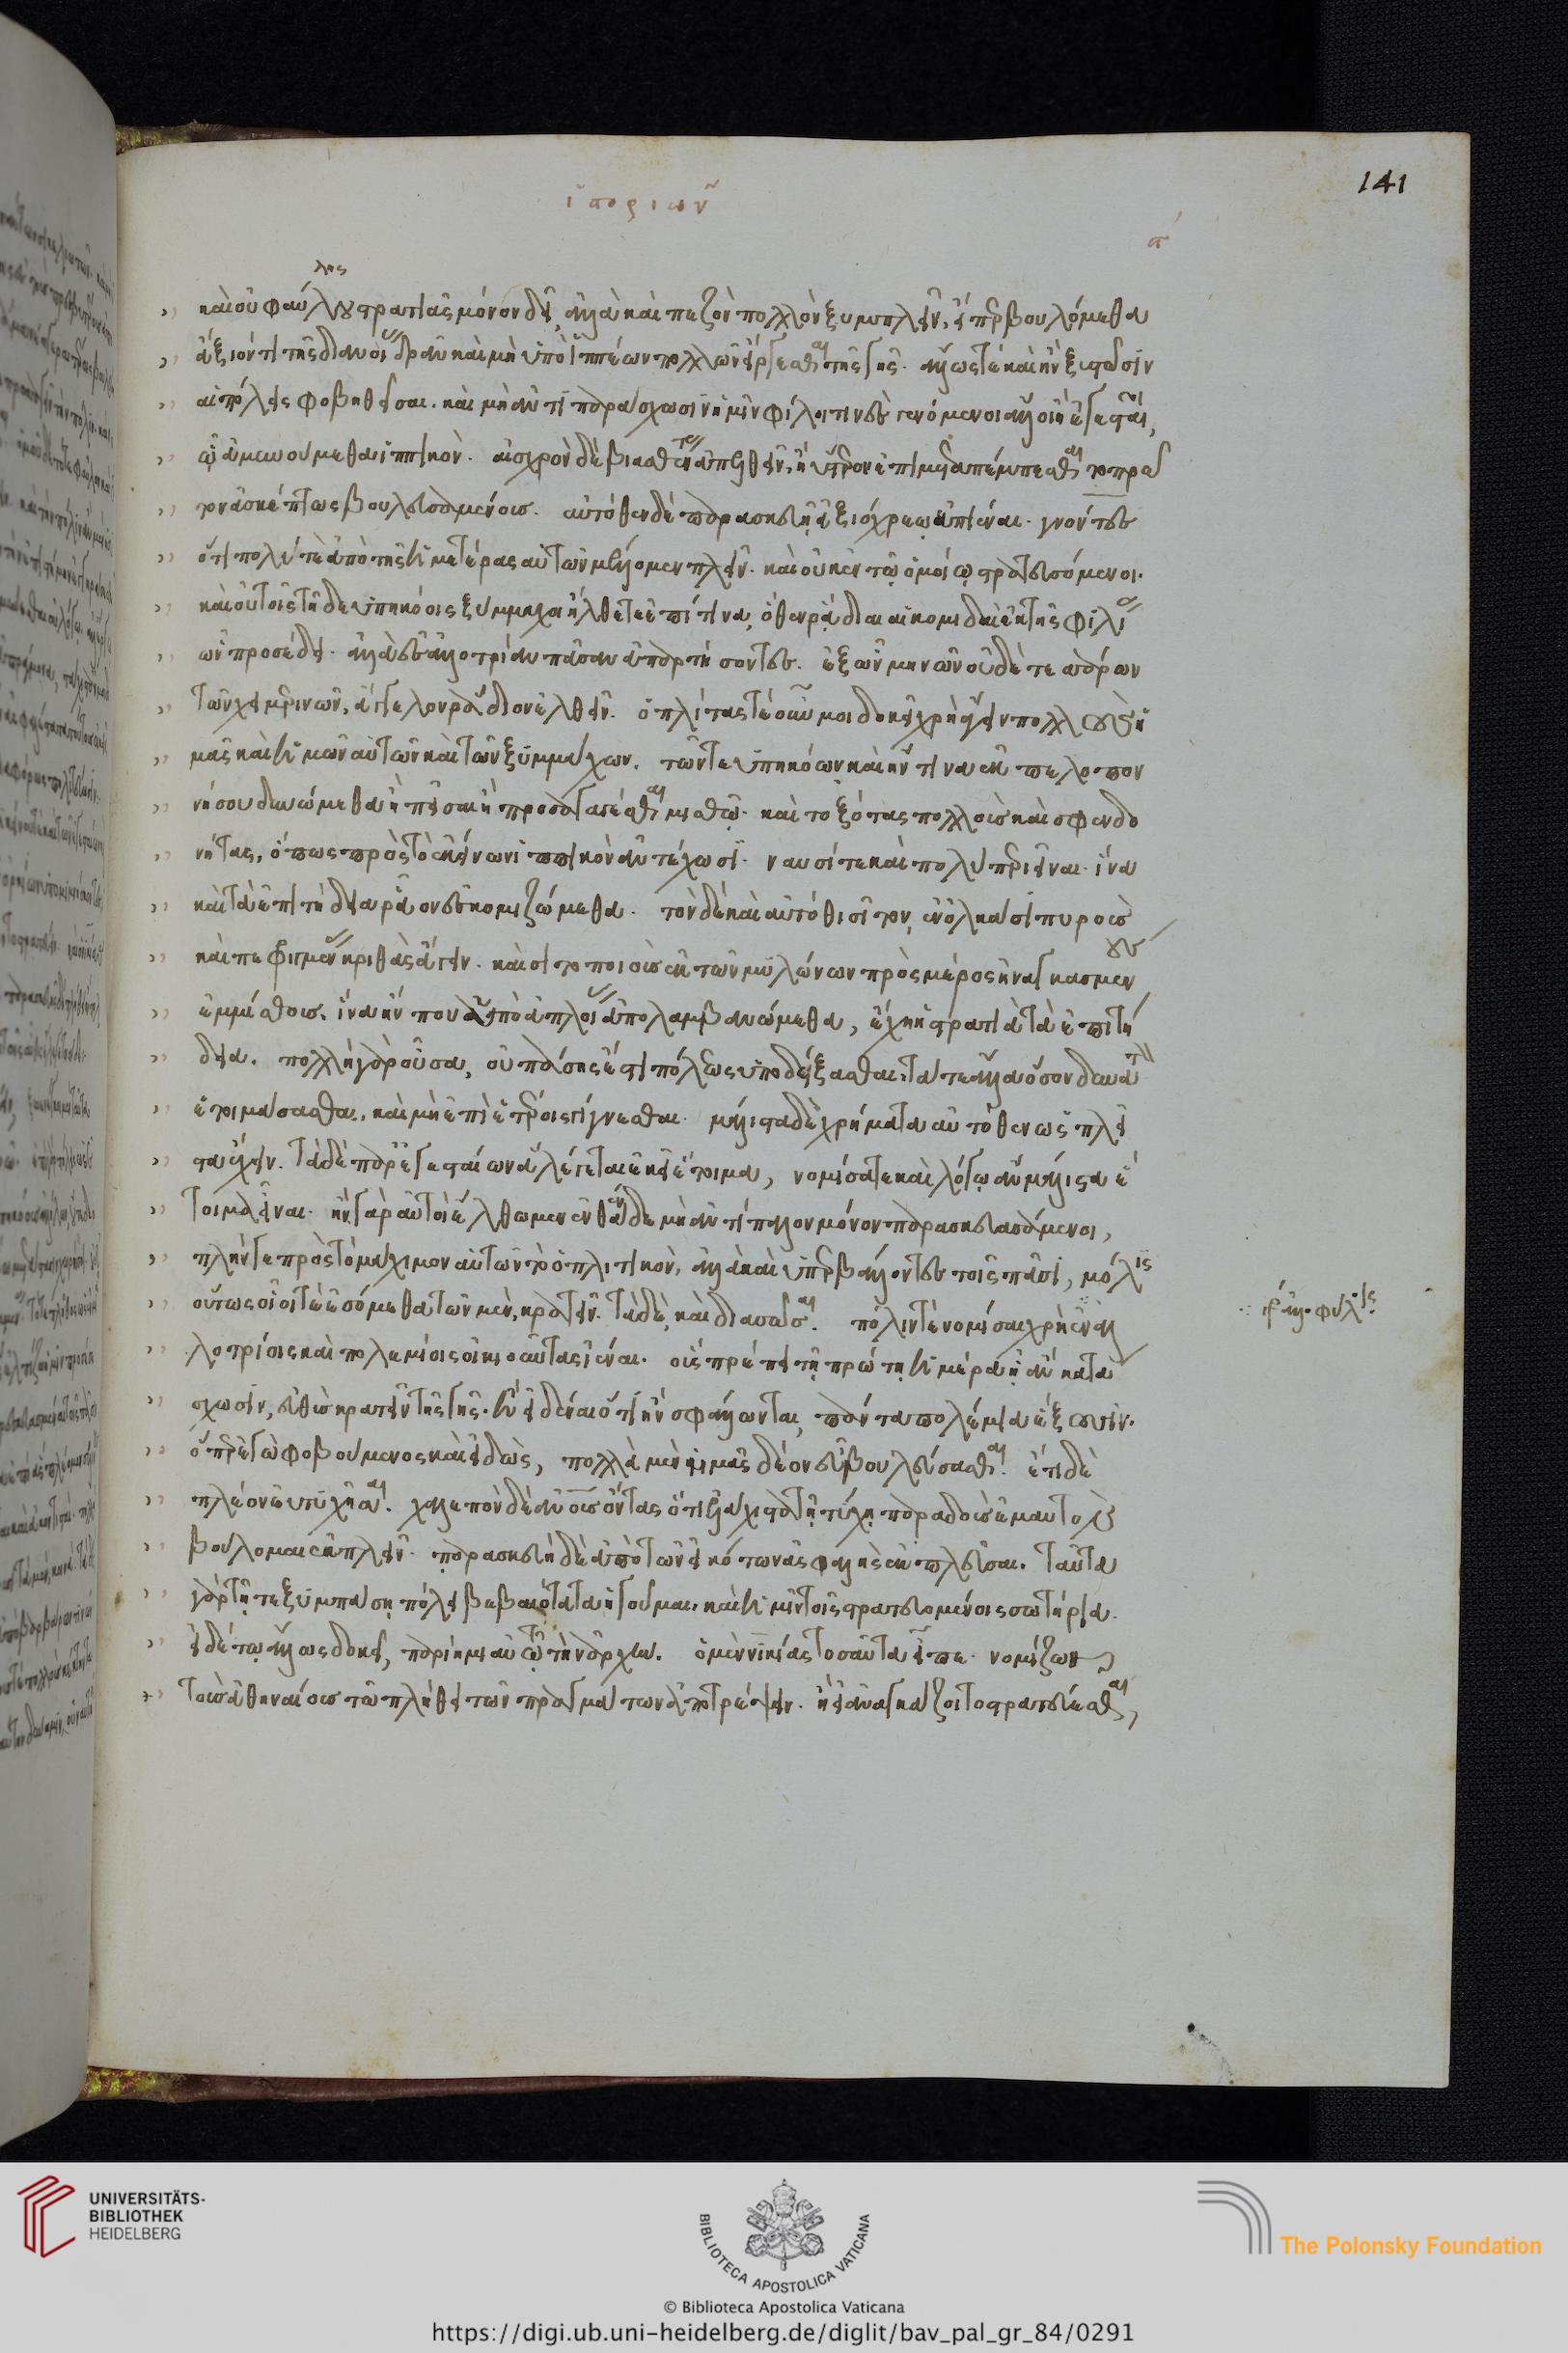 ἱστοριῶν
ϛ´
141
καὶ οὐ φαύλου στρατιᾶς μόνον δεῖ, ἀλλὰ καὶ πεζὸν πολλὸν ξυμπλεῖν, εἴπερ βουλόμεθα
λης
ἄξιόν τι τῆς διανοίας δρᾶν καὶ μὴ ὑπὸ ἱππέων πολλῶν εἴργεσθαι τῆς γῆς. ἄλλως τὲ καὶ ἢν ξυστῶσιν
αἱ πόλεις φοβηθεῖσαι. καὶ μὴ ἀντιπαράσχωσιν ἡμῖν φίλοι τινὲς γενόμενοι ἄλλοι ἢ ἐγεσταῖοι,
ᾧ ἀμυνούμεθα ἱππικόν. αἰσχρὸν δὲ βιασθέντας ἀπελθεῖν, ἢ ὕστερον ἐπιμεταπέμπεσθαι τὸ πρῶ
τον ἀσκέπτως βουλευσαμένους. αὐτόθεν δὲ παρασκευῇ ἀξιόχρεῳ ἐπιέναι. γνόντες
ὅτι πολύ τε ἀπὸ τῆς ἡμετέρας αὐτῶν μέλλομεν πλεῖν. καὶ οὐκ ἐν τῷ ὁμοίῳ στρατευσόμενοι.
καὶ οὐ τοῖς τῇδε ὑπηκόοις ξύμμαχοι ἤλθετε ἐπί τινα, ὅθεν ῥᾴδιαι αἱ κομιδαὶ ἐκ τῆς φιλίας
ὧν προσέδει. ἀλλὰ ἐς ἀλλοτρίαν πᾶσαν ἀπαρτήσοντες. ἐξ ὧν μηνῶν οὐδὲ τεσσάρων
τῶν χειμερινῶν, ἄγγελον ῥάδιον ἐλθεῖν. ὁπλίτας τε οὖν μοι δοκεῖ χρῆναι ἄγειν πολλοὺς ἡ
μᾶς καὶ ἡμῶν αὐτῶν καὶ τῶν ξυμμάχων. τῶν τε ὑπηκόων, καὶ ἤν τινα ἐκ πελοπον
νήσου δυνώμεθα ἢ πεῖσαι ἢ προσαγαγέσθαι μισθῷ. καὶ τοξότας πολλοὺς καὶ σφενδο
νήτας, ὅπως πρὸς τὸ ἐκείνων ἱππικὸν ἀντέχωσι. ναυσί τε καὶ πολὺ περιεῖναι. ἵνα
καὶ τὰ ἐπιτήδεια ῥᾷον ἐσκομιζώμεθα. τὸν δὲ καὶ αὐτόθι σῖτον, ἐν ὁλκάσι πυροὺς
καὶ πεφρυγμένας κριθὰς ἄγειν. καὶ σιτοποιοὺς ἐκ τῶν μυλώνων πρὸς μέρος ἠναγκασμένους
ἐμμίσθους. ἵνα ἤν που ὑπὸ ἀπλοίας ἀπολαμβανώμεθα, ἔχῃ ἡ στρατιὰ τὰ ἐπιτή
δεια. πολλὴ γὰρ οὖσα, οὐ πάσης ἔσται πόλεως ὑποδέξασθαι. τά τε ἄλλα ὅσον δυνατὸν
ἑτοιμάσασθαι. καὶ μὴ ἐπὶ ἑτέροις γίγνεσθαι. μάλιστα δὲ χρήματα αὐτόθεν ὡς πλεῖ
στα ἔχειν. τὰ δὲ παρ' ἐγεσταίων ἃ λέγεται ἐκεῖ ἕτοιμα, νομίσατε καὶ λόγῳ ἂν μάλιστα ἑ
τοῖμα εἶναι. ἢν γὰρ αὐτοὶ ἔλθωμεν ἐνθένδε μὴ ἀντίπαλον μόνον παρασκευασάμενοι,
πλήν γε πρὸς τὸ μάχιμον αὐτῶν τὸ ὁπλιτικόν, ἀλλὰ καὶ ὑπερβάλλοντες τοῖς πᾶσι, μόλις
οὕτως οἷοί τε ἐσόμεθα τῶν μὲν, κρατεῖν. τὰ δὲ, καὶ διασῶσαι. πόλιν τε νομίσαι χρὴ ἐν ἀλ
λοτρίοις καὶ πολεμίοις οἰκιοῦντας ἰέναι. οὓς πρέπει τῇ πρώτῃ ἡμέρᾳ ᾗ ἂν κατά
σχωσιν, εὐθὺς κρατεῖν τῆς γῆς. ἢ εἰδέναι ὅτι ἢν σφάλλωνται, πάντα πολέμια ἕξουσιν.
ὅπερ ἐγὼ φοβούμενος καὶ εἰδὼς, πολλὰ μὲν ἡμᾶς δέον εὖ βουλεύσασθαι. ἔτι δὲ
πλέον εὐτυχῆσαι. χαλεπὸν δὲ ἀνθρώπους ὄντας ὅτι ἐλάχιστα τῇ τύχῃ παραδοὺς ἐμαυτὸν
βούλομαι ἐκπλεῖν. παρασκευῇ δὲ ἀπὸ τῶν εἰκότων ἀσφαλὴς ἐκπλεῦσαι. ταῦτα
γὰρ τῇ τε ξυμπάσῃ πόλει βεβαιότατα ἡγοῦμαι. καὶ ἡμῖν τοῖς στρατευομένοις σωτήρια.
εἰ δέ τῳ ἄλλως δοκεῖ, παρίημι αὐτῷ τὴν ἀρχήν. ὁ μὲν νικίας τοσαῦτα εἶπε νομίζων
τοὺς ἀθηναίους τῷ πλήθει τῶν πραγμάτων ἀποτρέψειν. ἢ εἰ ἀναγκάζοιτο στρατεύεσθαι,
UNIVERSITÄTS-
BIBLIOTHEK
HEIDELBERG
BIBLIOTECA APOSTOLICA VATICANA
The Polonsky Foundation
© Biblioteca Apostolica Vaticana
https://digi.ub.uni-heidelberg.de/diglit/bav_pal_gr_84/0291